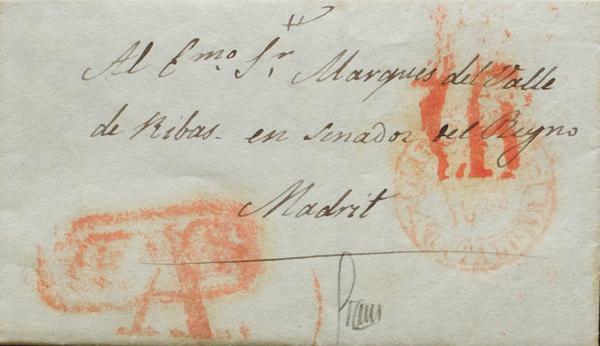 Al Emo Sr. Marques del Valle
de Ribas. en Senador del Reyno
Madrit